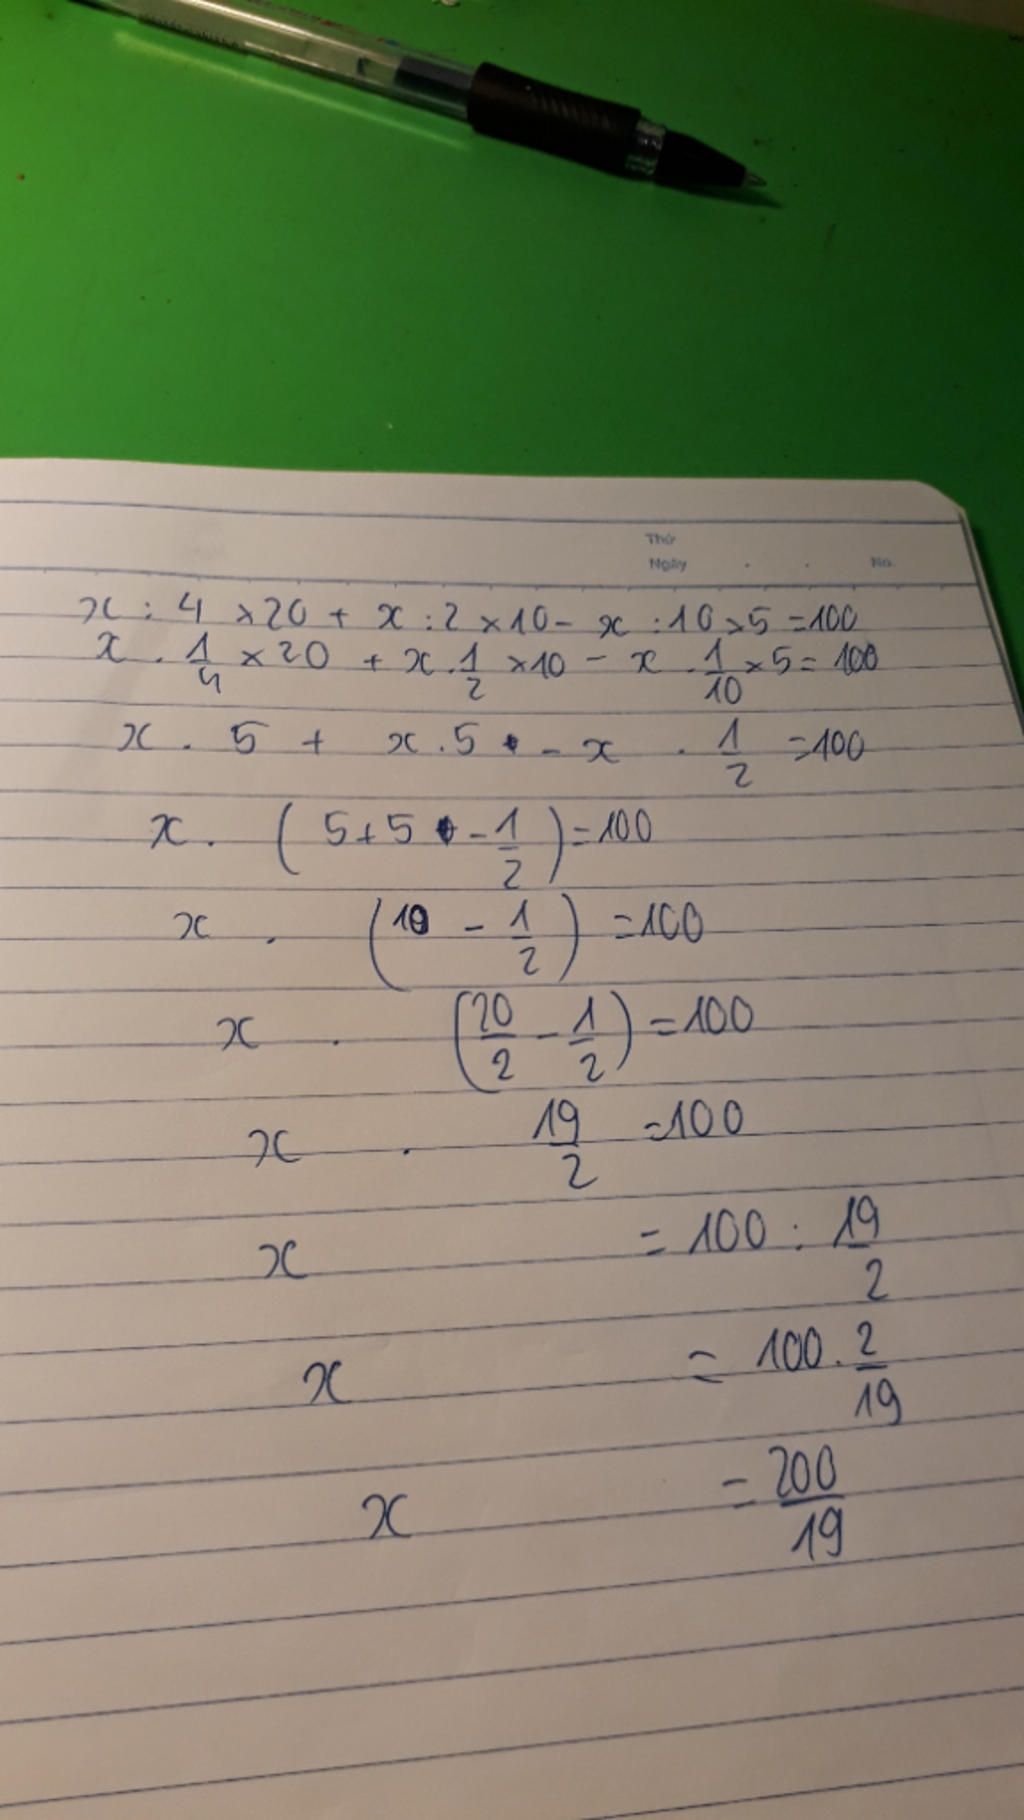 Thứ
Ngày . . No.
x : 4 × 20 + x : 2 × 10 - x : 10 × 5 = 100
x . 1/4 × 20 + x . 1/2 × 10 - x . 1/10 × 5 = 100
x . 5 + x . 5 - x . 1/2 = 100
x . ( 5 + 5 - 1/2 ) = 100
x . ( 10 - 1/2 ) = 100
x . ( 20/2 - 1/2 ) = 100
x . 19/2 = 100
x = 100 : 19/2
x = 100 . 2/19
x = 200/19